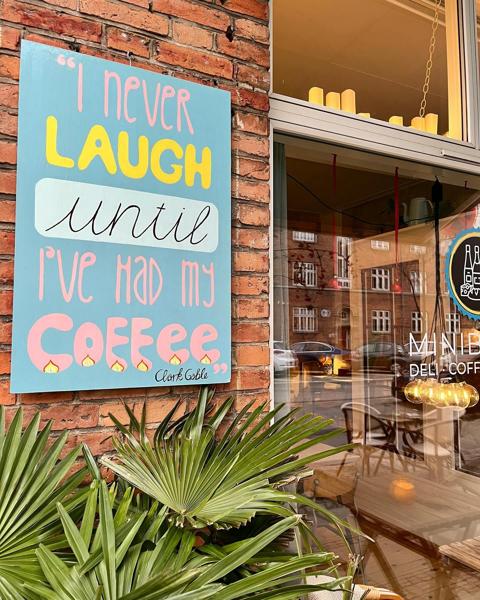 “I never
LAUGH
until
I've HAD my
COFFEE„
Clark Gable
MINIB
DELI · COFF